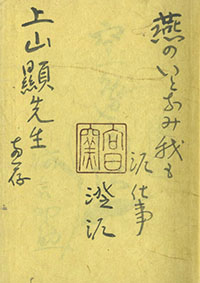 燕のいとなみ我も
泥仕事
澄泥
上山顯先生
恵存